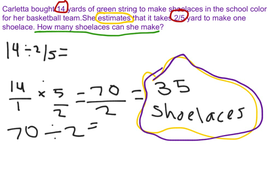 Carletta bought 14 yards of green string to make shoelaces in the school color
for her basketball team. She estimates that it takes 2/5 yard to make one
shoelace. How many shoelaces can she make?
14 ÷ 2/5 =
14/1 × 5/2 = 70/2 = 35
shoelaces
70 ÷ 2 =